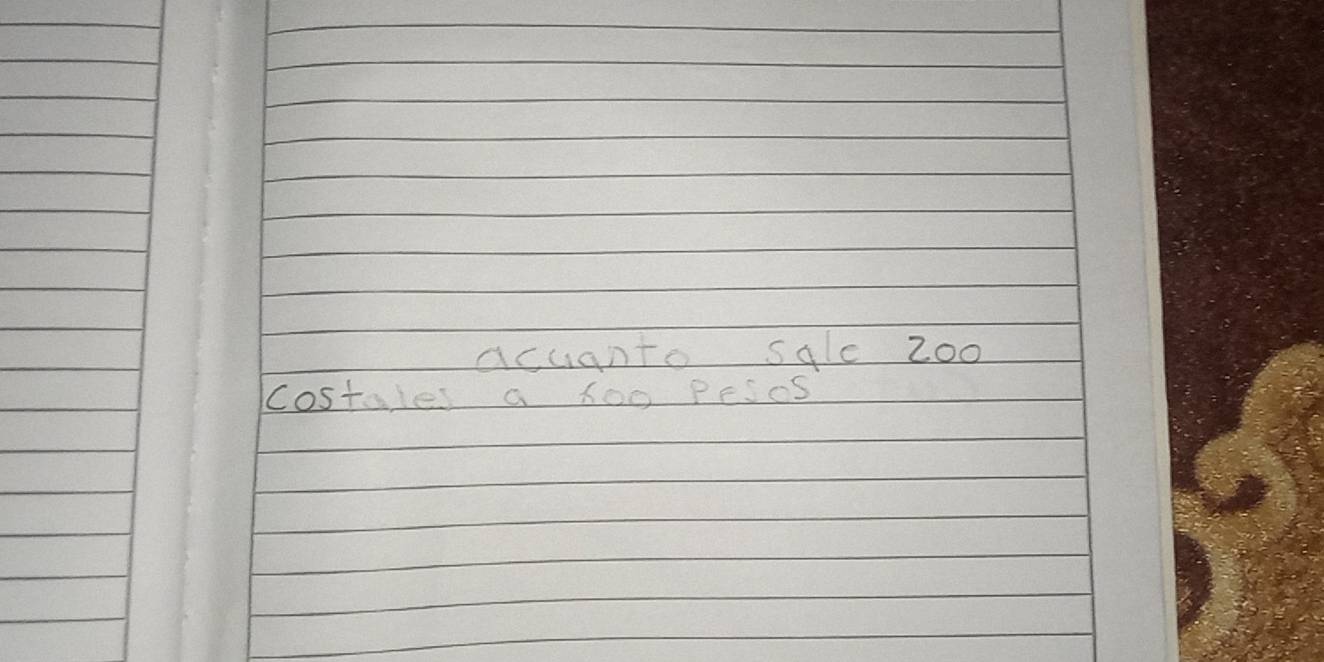 acuanto sale 200
costales a 600 pesos